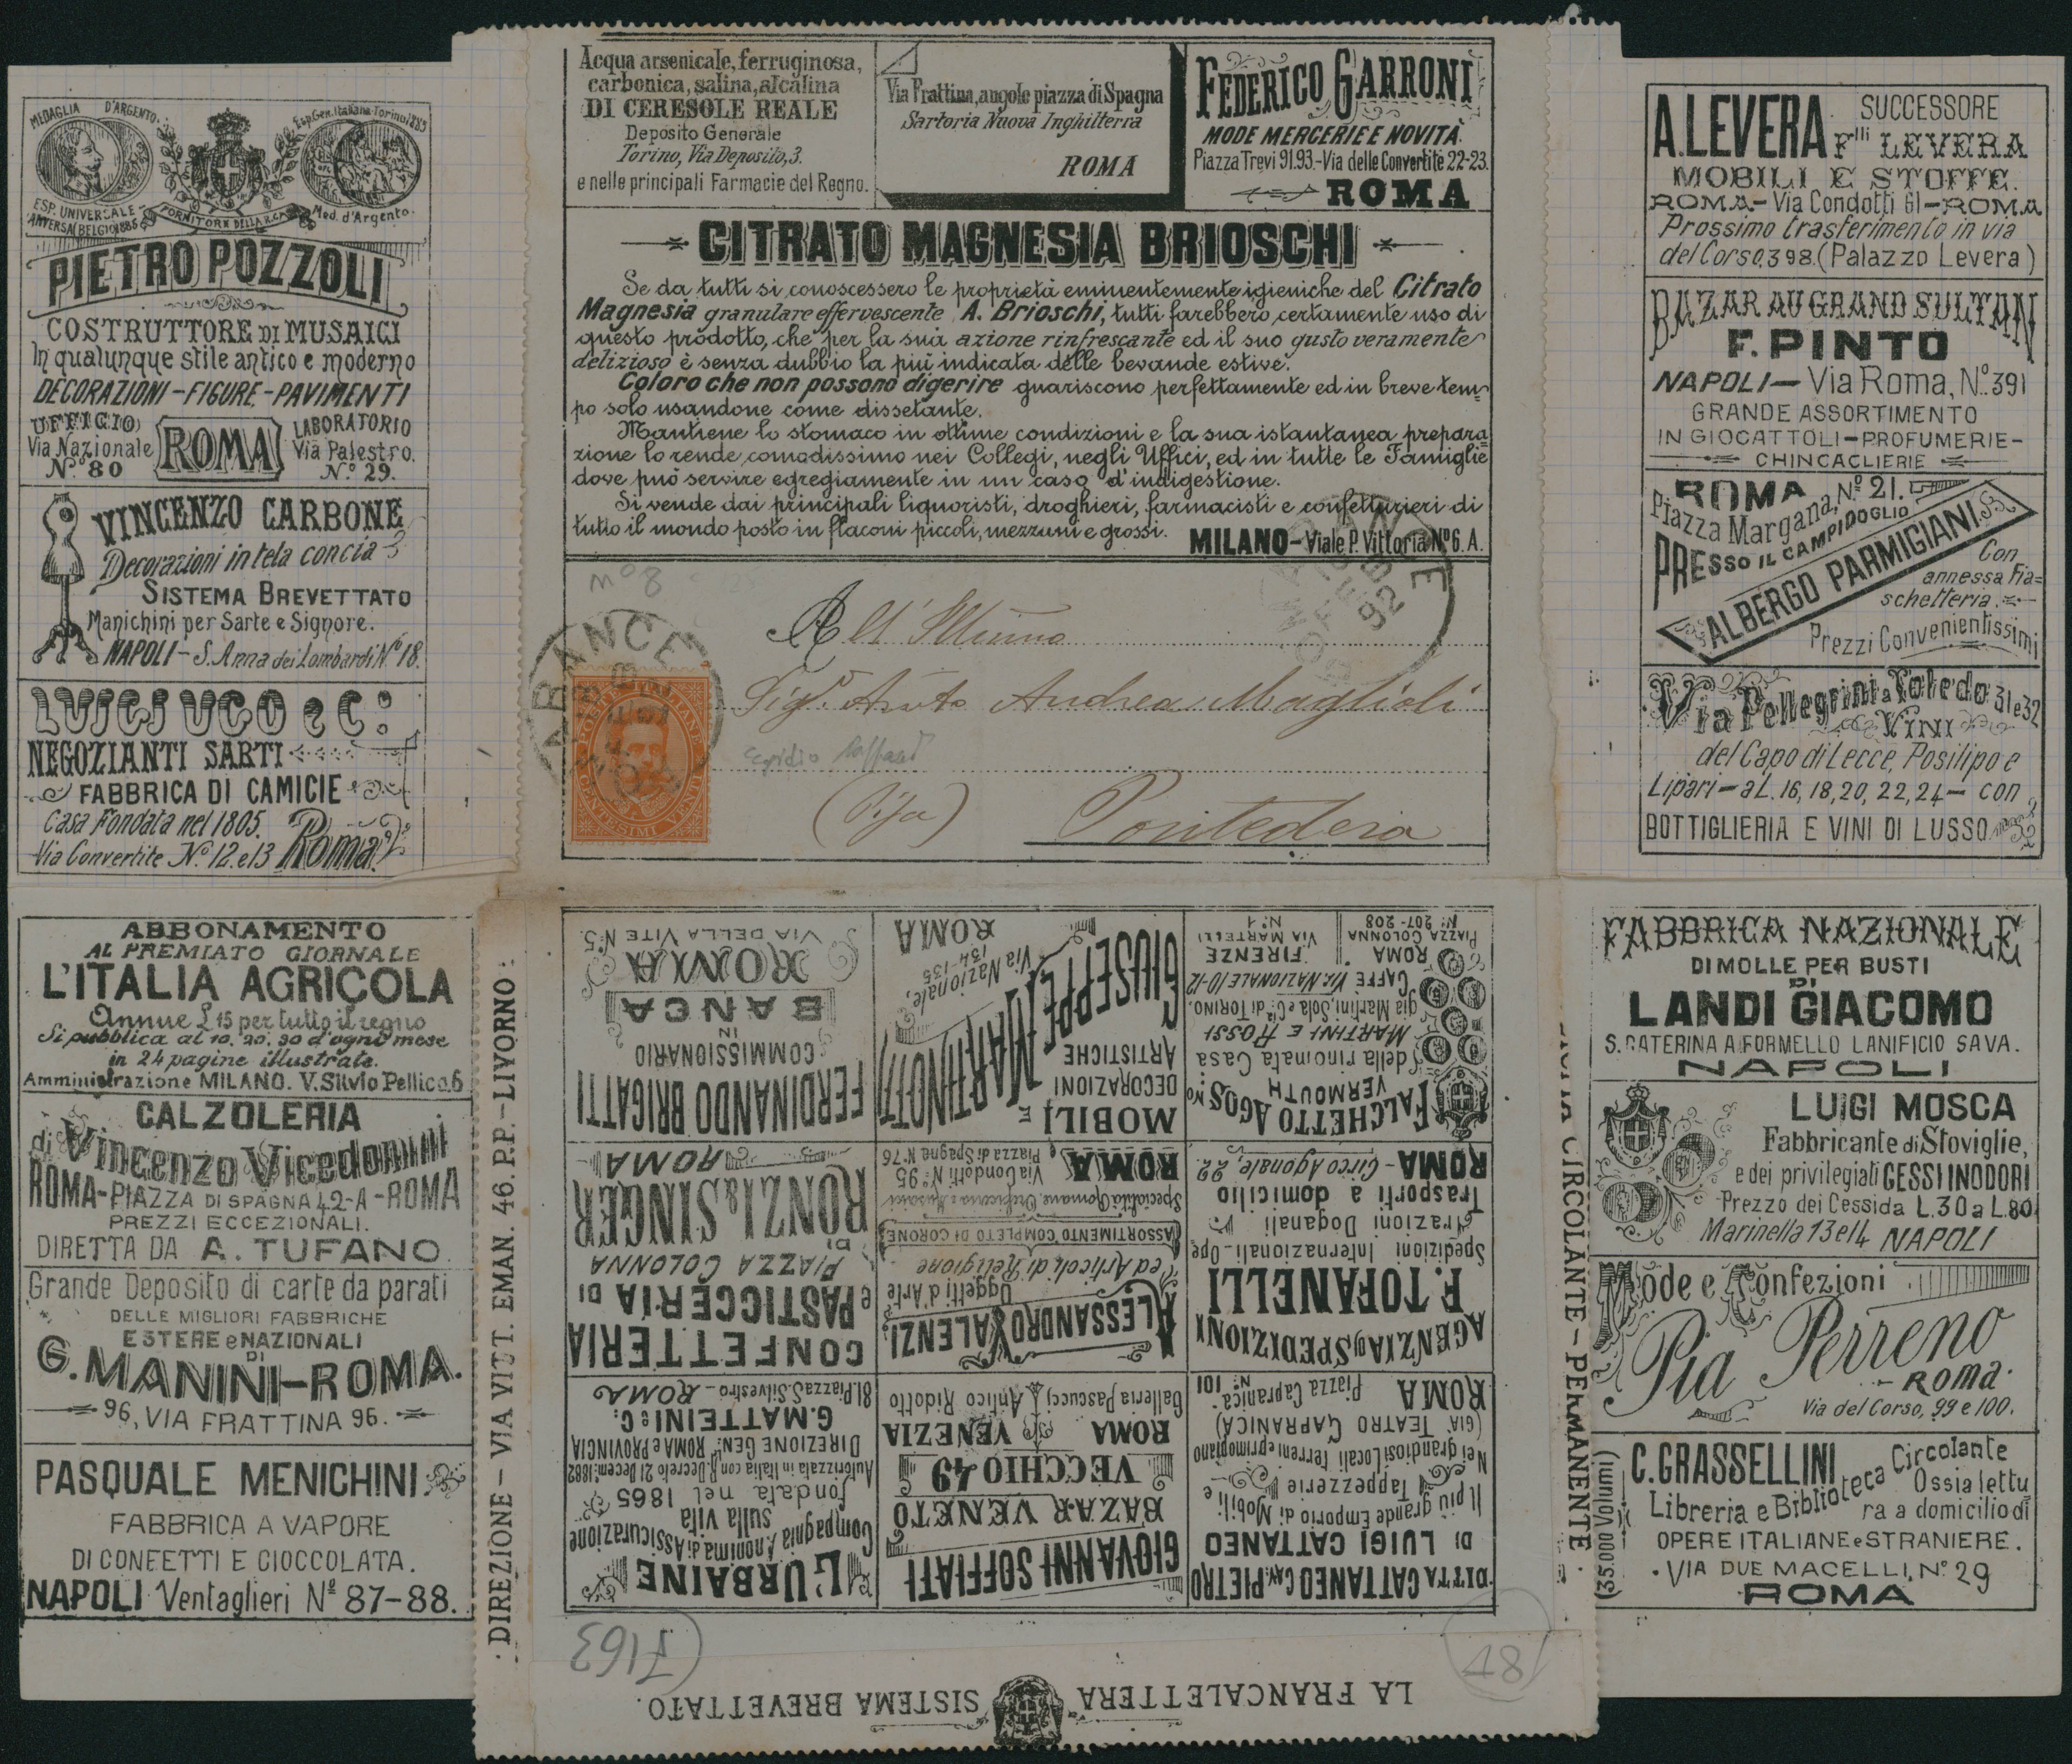 MEDAGLIA D'ARGENTO.
Esp. Gen. Italiana-Torino 1885
ESP. UNIVERSALE-
ANVERSA (BELGIO) 1885
FORNITORE DELLA R. CASA
Med. d'Argento.
PIETRO POZZOLI
COSTRUTTORE DI MUSAICI
In qualunque stile antico e moderno
DECORAZIONI-FIGURE-PAVIMENTI
UFFICIO
Via Nazionale
Nº 80
ROMA
LABORATORIO
Via Palestro.
Nº 29.
VINCENZO CARBONE
Decorazioni in tela concia
SISTEMA BREVETTATO
Manichini per Sarte e Signore.
NAPOLI-S. Anna dei Lombardi Nº 18.
LUIGI UGO e C:
NEGOZIANTI SARTI
FABBRICA DI CAMICIE
Casa Fondata nel 1805.
Via Convertite Nº 12. e 13 Roma.
Acqua arsenicale, ferruginosa,
carbonica, salina, alcalina
DI CERESOLE REALE
Deposito Generale
Torino, Via Deposito, 3.
e nelle principali Farmacie del Regno.
Via Frattina, angole piazza di Spagna
Sartoria Nuova Inghilterra
ROMA
FEDERICO GARRONI
MODE MERCERIE E NOVITÀ.
Piazza Trevi 91.93.-Via delle Convertite 22-23.
ROMA
CITRATO MAGNESIA BRIOSCHI
Se da tutti si conoscessero le proprietà eminentemente igieniche del Citrato
Magnesia granulare effervescente A. Brioschi, tutti farebbero certamente uso di
questo prodotto, che per la sua azione rinfrescante ed il suo gusto veramente
delizioso è senza dubbio la più indicata delle bevande estive.
Coloro che non possono digerire guariscono perfettamente ed in breve tem=
po solo usandone come dissetante.
Mantiene lo stomaco in ottime condizioni e la sua istantanea prepara=
zione lo rende comodissimo nei Collegi, negli Uffici, ed in tutte le Famiglie
dove può servire egregiamente in un caso d'indigestione.
Si vende dai principali liquoristi, droghieri, farmacisti e confetturieri di
tutto il mondo posto in flaconi piccoli, mezzani e grossi.
MILANO-Viale P. Vittoria Nº 6. A.
nº 8
All' Illmo
Sigr. Avvto Andrea Maglioli
(Pisa) Pontedera
POSTE ITALIANE
CENTESIMI VENTI
92
A. LEVERA SUCCESSORE
Flli LEVERA
MOBILI E STOFFE.
ROMA-Via Condotti 61-ROMA
Prossimo trasferimento in via
del Corso, 398. (Palazzo Levera)
BAZAR AU GRAND SULTAN
F. PINTO
NAPOLI-Via Roma, Nº. 391
GRANDE ASSORTIMENTO
IN GIOCATTOLI-PROFUMERIE-
CHINCAGLIERIE
ROMA
Piazza Margana, Nº 21.
PRESSO IL CAMPIDOGLIO
ALBERGO PARMIGIANI
Con
annessa Fia=
schetteria.
Prezzi Convenientissimi
Via Pellegrini a Toledo 31 e 32
VINI
del Capo di Lecce, Posilipo e
Lipari-a L. 16, 18, 20, 22, 24-con
BOTTIGLIERIA E VINI DI LUSSO
ABBONAMENTO
AL PREMIATO GIORNALE
L'ITALIA AGRICOLA
Annue £ 15 per tutto il regno
Si pubblica al 10. 20. 30 d'ogni mese
in 24 pagine illustrate.
Amministrazione MILANO. V. Silvio Pellico. 6
CALZOLERIA
di Vincenzo Vicedomini
ROMA-PIAZZA DI SPAGNA 42-A-ROMA
PREZZI ECCEZIONALI.
DIRETTA DA A. TUFANO.
Grande Deposito di carte da parati
DELLE MIGLIORI FABBRICHE
ESTERE e NAZIONALI
DI
G. MANINI-ROMA.
96, VIA FRATTINA 96.
PASQUALE MENICHINI.
FABBRICA A VAPORE
DI CONFETTI E CIOCCOLATA.
NAPOLI Ventaglieri Nº 87-88.
: DIREZIONE - VIA VITT. EMAN. 46. P.P.-LIVORNO :
DITTA CATTANEO CAV. PIETRO
DI LUIGI CATTANEO
Il più grande Emporio di Mobili
e Tappezzerie
Nei grandiosi Locali terreni e primo piano
(GIA TEATRO CAPRANICA)
ROMA Piazza Capranica. Nº 101
GIOVANNI SOFFIATI
BAZAR VENETO
VECCHIO 49
ROMA VENEZIA
Galleria Pascucci Antico Ridotto
L'URBAINE
Compagnia Anonima di Assicurazione
sulla vita
fondata nel 1865
Autorizzata in Italia con R. Decreto 21 Decem: 1882
DIREZIONE GENle ROMA e PROVINCIA
G. MATTEINI e C.
81. Piazza S. Silvestro - ROMA
AGENZIA DI SPEDIZIONI
F. TOFANELLI
Spedizioni Internazionali-Ope=
razioni Doganali
Trasporti a domicilio
ROMA-Circo Agonale, 22.
ALESSANDRO VALENZI,
Oggetti d'Arte
ed Articoli di Religione
ASSORTIMENTO COMPLETO DI CORONE
Specialità Romane: Oreficeria e Musaici
ROMA Via Condotti Nº 95
Piazza di Spagna Nº 76
CONFETTERIA
e PASTICCERIA DI
PIAZZA COLONNA
DI
RONZI & SINGER
ROMA
FALCHETTO AGOSno
VERMOUTH
della rinomata Casa
MARTINI E ROSSI
già Martini, Sola e Cia. di TORINO.
CAFFE VIA NAZIONALE 10-12
ROMA FIRENZE
PIAZZA COLONNA VIA MARTELLI
Nº. 207-208 Nº 1
MOBILI E
DECORAZIONI
ARTISTICHE
GIUSEPPE MARTINOTTI
Via Nazionale,
134-135
ROMA
FERDINANDO BRIGATTI
COMMISSIONARIO
IN
BANCA
ROMA
VIA DELLA VITE Nº 5.
F163
48
LA FRANCALETTERA SISTEMA BREVETTATO.
CIRCOLANTE - PERMANENTE
FABBRICA NAZIONALE
DI MOLLE PER BUSTI
DI
LANDI GIACOMO
S. CATERINA A FORMELLO LANIFICIO SAVA.
NAPOLI
LUIGI MOSCA
Fabbricante di Stoviglie,
e dei privilegiati GESSI INODORI
Prezzo dei Cessi da L. 30 a L. 80
Marinella 13 e 14 NAPOLI
Mode e Confezioni
Pia Perreno
ROMA.
Via del Corso, 99 e 100.
(35.000 Volumi)
C. GRASSELLINI
Libreria e Biblioteca Circolante
Ossia lettu=
ra a domicilio di
OPERE ITALIANE e STRANIERE.
VIA DUE MACELLI, Nº 29
ROMA